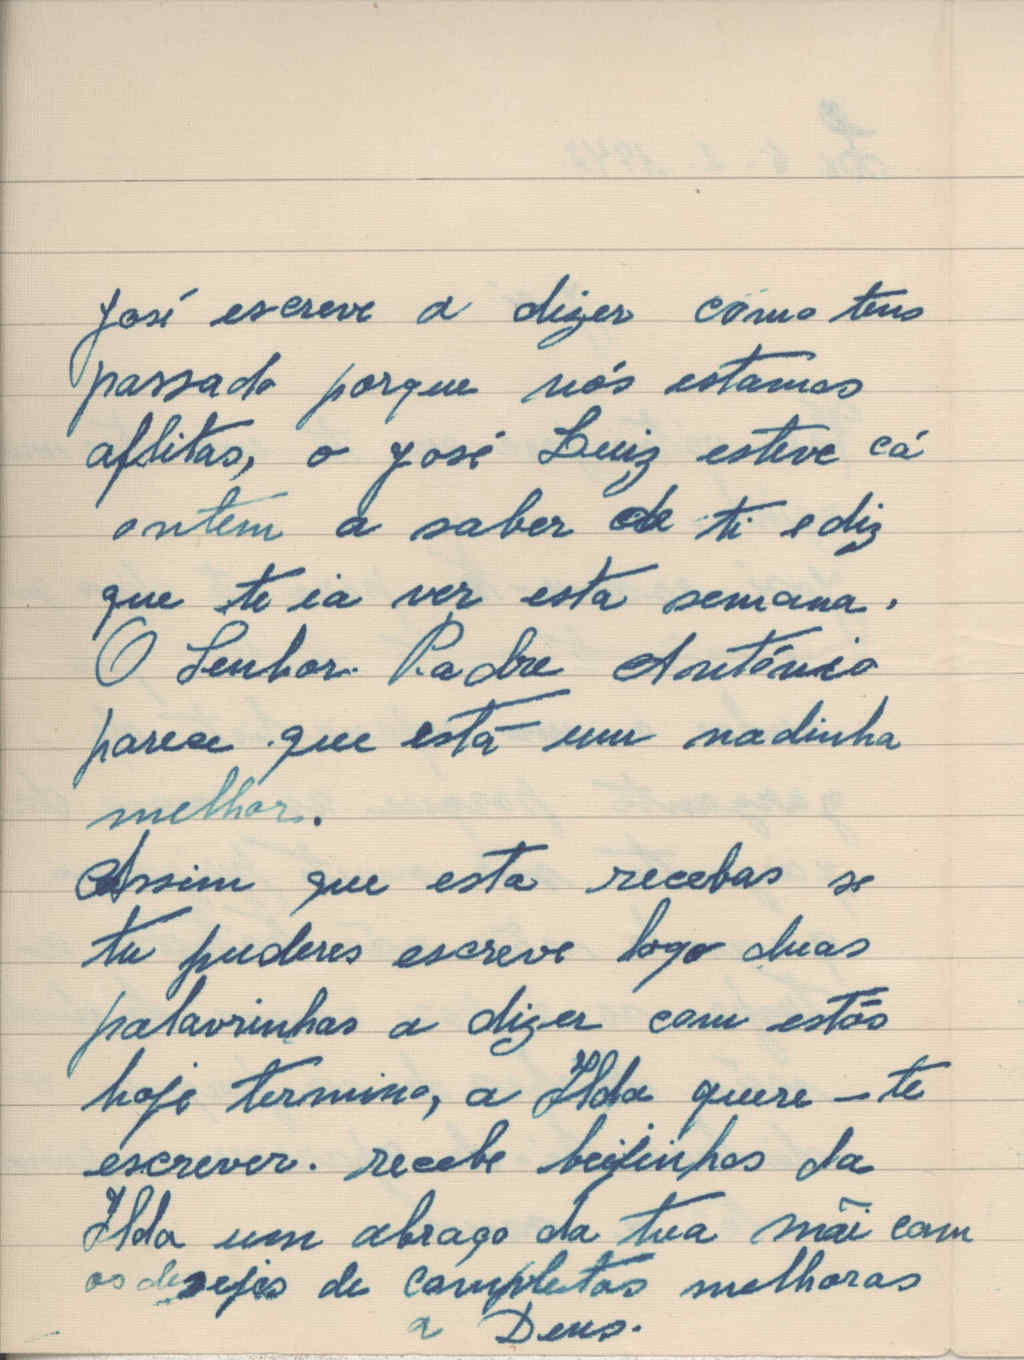 José escreve a dizer como tens
passado porque nós estamos
aflitas, o José Luiz esteve cá
ontem a saber de ti e diz
que te ia ver esta semana.
O Senhor Padre António
parece que está um nadinha
melhor.
Assim que esta recebas se
tu puderes escreve logo duas
palavrinhas a dizer com estás
hoje termino, a Ilda quere-te
escrever. recebe beijinhos da
Ilda um abraço da tua mãi com
os desejos de completas melhoras
a Deus.